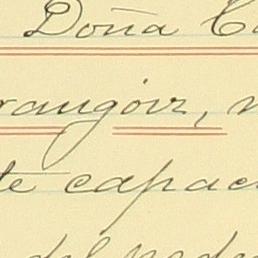 Doña Ca
rangóiz, n
te capac
del pode